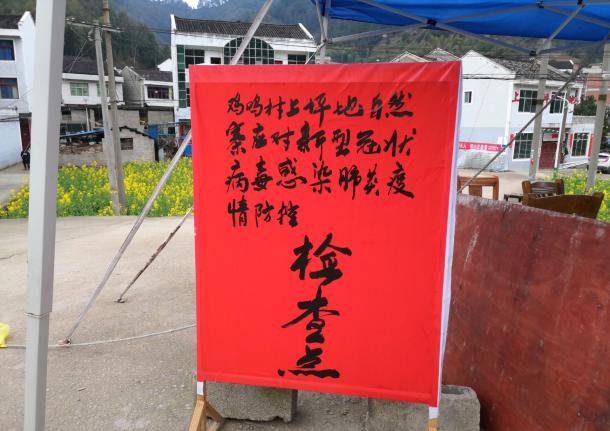 鸡鸣村上坪地自然
寨应对新型冠状
病毒感染肺炎疫
情防控
检
查
点